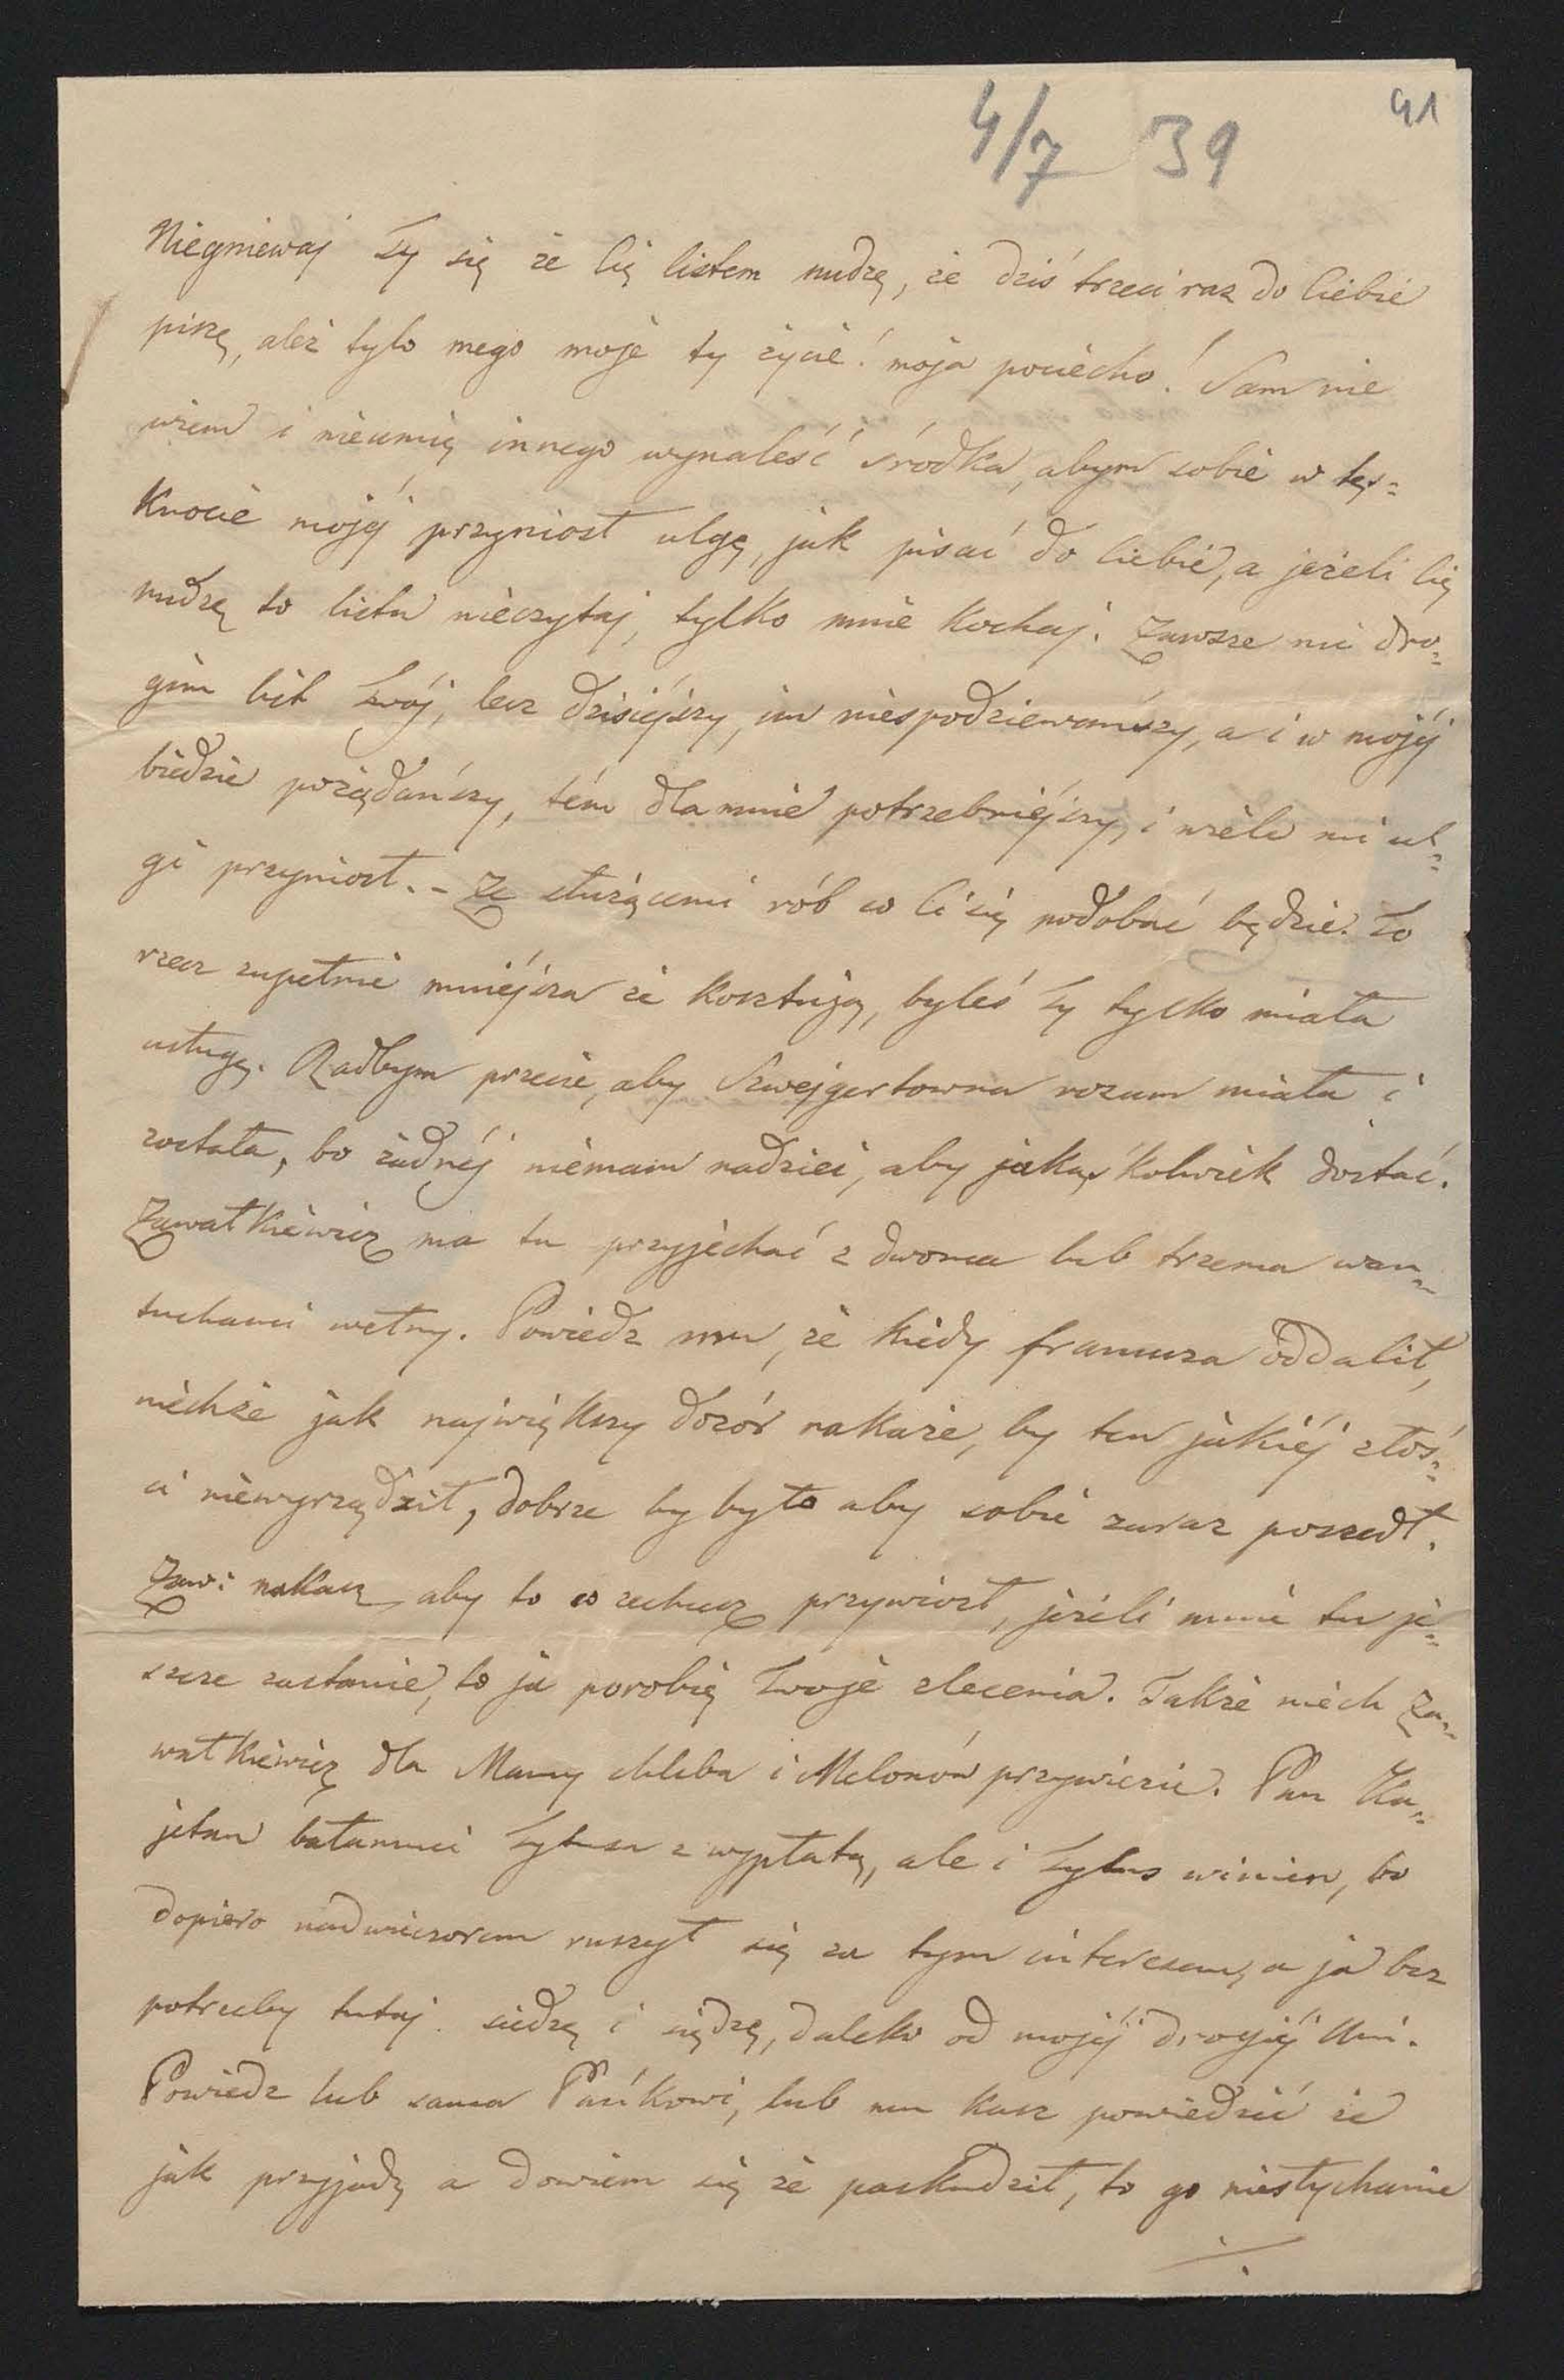 4/7 39
41
Niegniewaj Ty się że Cię listem nudzę, że dziś trzeci raz do Ciebie
piszę, ależ tylo mego moje ty życie! moja pociecho! Sam nie
wiem i nieumię innego wynaleść środka, abym sobie w tęs=
knocie mojéj przyniosł ulgę, jak pisać do Ciebie, a jeżeli Cię
nudzę to listu nieczytaj, tylko mnie kochaj. Zawsze mi dro=
gim list Twój, lecz dzisiéjszy, im niespodziewańszy, a i w mojéj
biedzie pożądańszy, tém dla mnie potrzebniéjszy, i wiele mi ul=
gi przyniosł. – Ze służącemi rób co Ci się podobać będzie. To
rzecz zupełnie mniéjsza że kosztują, byleś Ty tylko miała
usługę. Radbym przecie, aby Szwejgertowna rozum miała i
została, bo żadnéj niemam nadziei, aby jakąśkolwiek dostać.
Zawałkiéwicz ma tu przyjechać z dwoma lub trzema wan=
tuchami wełny. Powiedz mu, że kiedy francuza oddalił,
niechże jak największy dozór nakaże, by ten jakiéj złoś=
ci niewyrządził, dobrze by było aby sobie zaraz poszedł.
Zaw: nakaż aby to co zechcesz przywiozł, jeżeli mnie tu je=
szcze zastanie, to ja porobię Twoje zlecenia. Także niech Za=
wałkiewicz dla Mamy chleba i Melonów przywiezie. Pan Ka=
jetan bałamuci Tytusa z wypłatą, ale i Tytus winien, bo
dopiero nadwieczorem ruszył się za tym interesem, a ja bez
potrzeby tutaj siedzę i siędzę, daleko od mojéj drogiéj Uni.
Powiedz lub sama Pańkowi, lub mu każ powiedzieć że
jak przyjadę a dowiem się że paskudził, to go niesłychanie
./.